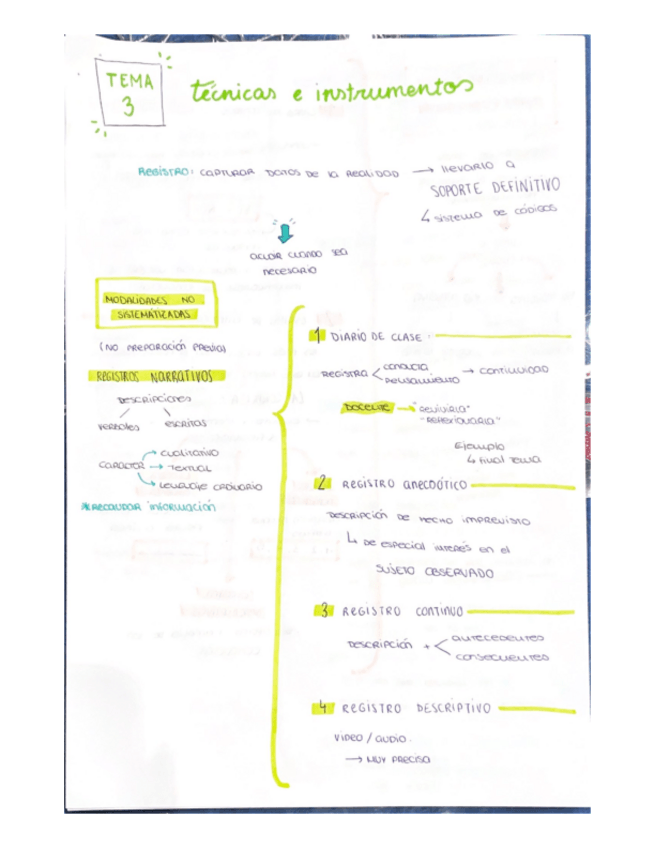 TEMA
3
técnicas e instrumentos
REGISTRO: CAPTURAR DATOS DE LA REALIDAD → llevarlo a
SOPORTE DEFINITIVO
↳ sistema de códigos
ACUDIR CUANDO SEA
necesario
MODALIDADES NO
SISTEMATIZADAS
(NO PREPARACIÓN PREVIA)
REGISTROS NARRATIVOS
DESCRIPCIONES
verbales escritas
CARÁCTER → cualitativo
→ TEXTUAL
→ LENGUAJE ORDINARIO
AL RECAUDAR INFORMACIÓN
1 DIARIO DE CLASE:
REGISTRA < conducta
pensamiento → continuidad
DOCENTE → "REVIVIRLA"
"REFLEXIONARLA"
Ejemplo
↳ final tema
2 REGISTRO ANECDÓTICO
DESCRIPCIÓN DE HECHO IMPREVISTO
↳ DE ESPECIAL INTERÉS EN EL
SUJETO OBSERVADO
3 REGISTRO CONTINUO
DESCRIPCIÓN + < antecedentes
consecuentes
4 REGISTRO DESCRIPTIVO
VIDEO / AUDIO.
→ MUY PRECISO